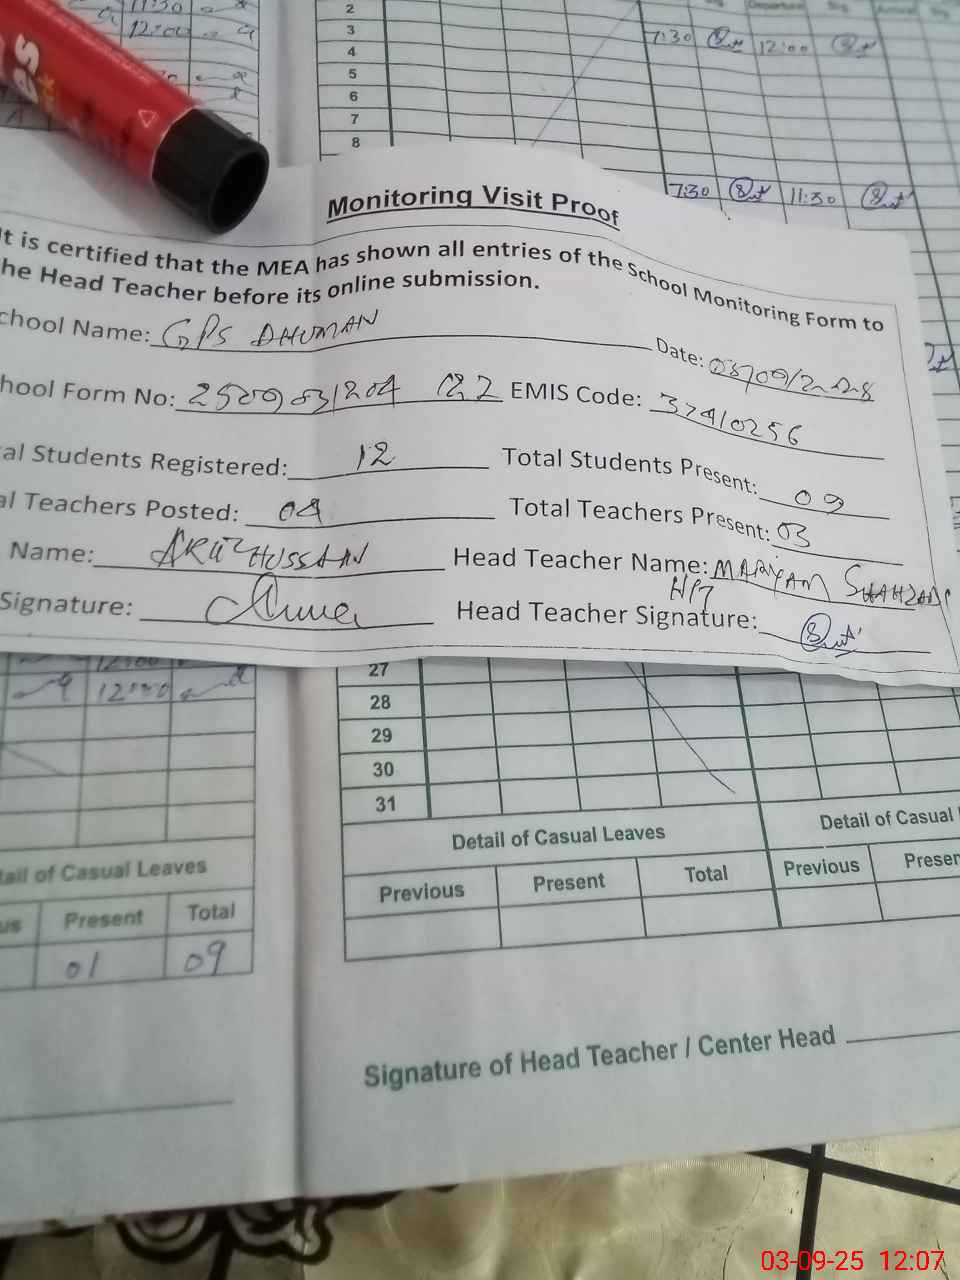 2
3 7:30 12:00
4
5
6
7
8
7:30 11:30
12:00
Monitoring Visit Proof
It is certified that the MEA has shown all entries of the School Monitoring Form to
he Head Teacher before its online submission.
chool Name: GPS DHUMAN Date:
hool Form No: EMIS Code: 37410256
al Students Registered: 12 Total Students Present: 09
al Teachers Posted: 04 Total Teachers Present: 03
Name: HUSSAAN Head Teacher Name: MARYAM SHAHZADI
HPT
Signature: Head Teacher Signature:
27
28
29
30
31
Detail of Casual Leaves Detail of Casual
Previous Present Total Previous Presen
tail of Casual Leaves
us Present Total
01 09
Signature of Head Teacher / Center Head
03-09-25 12:07